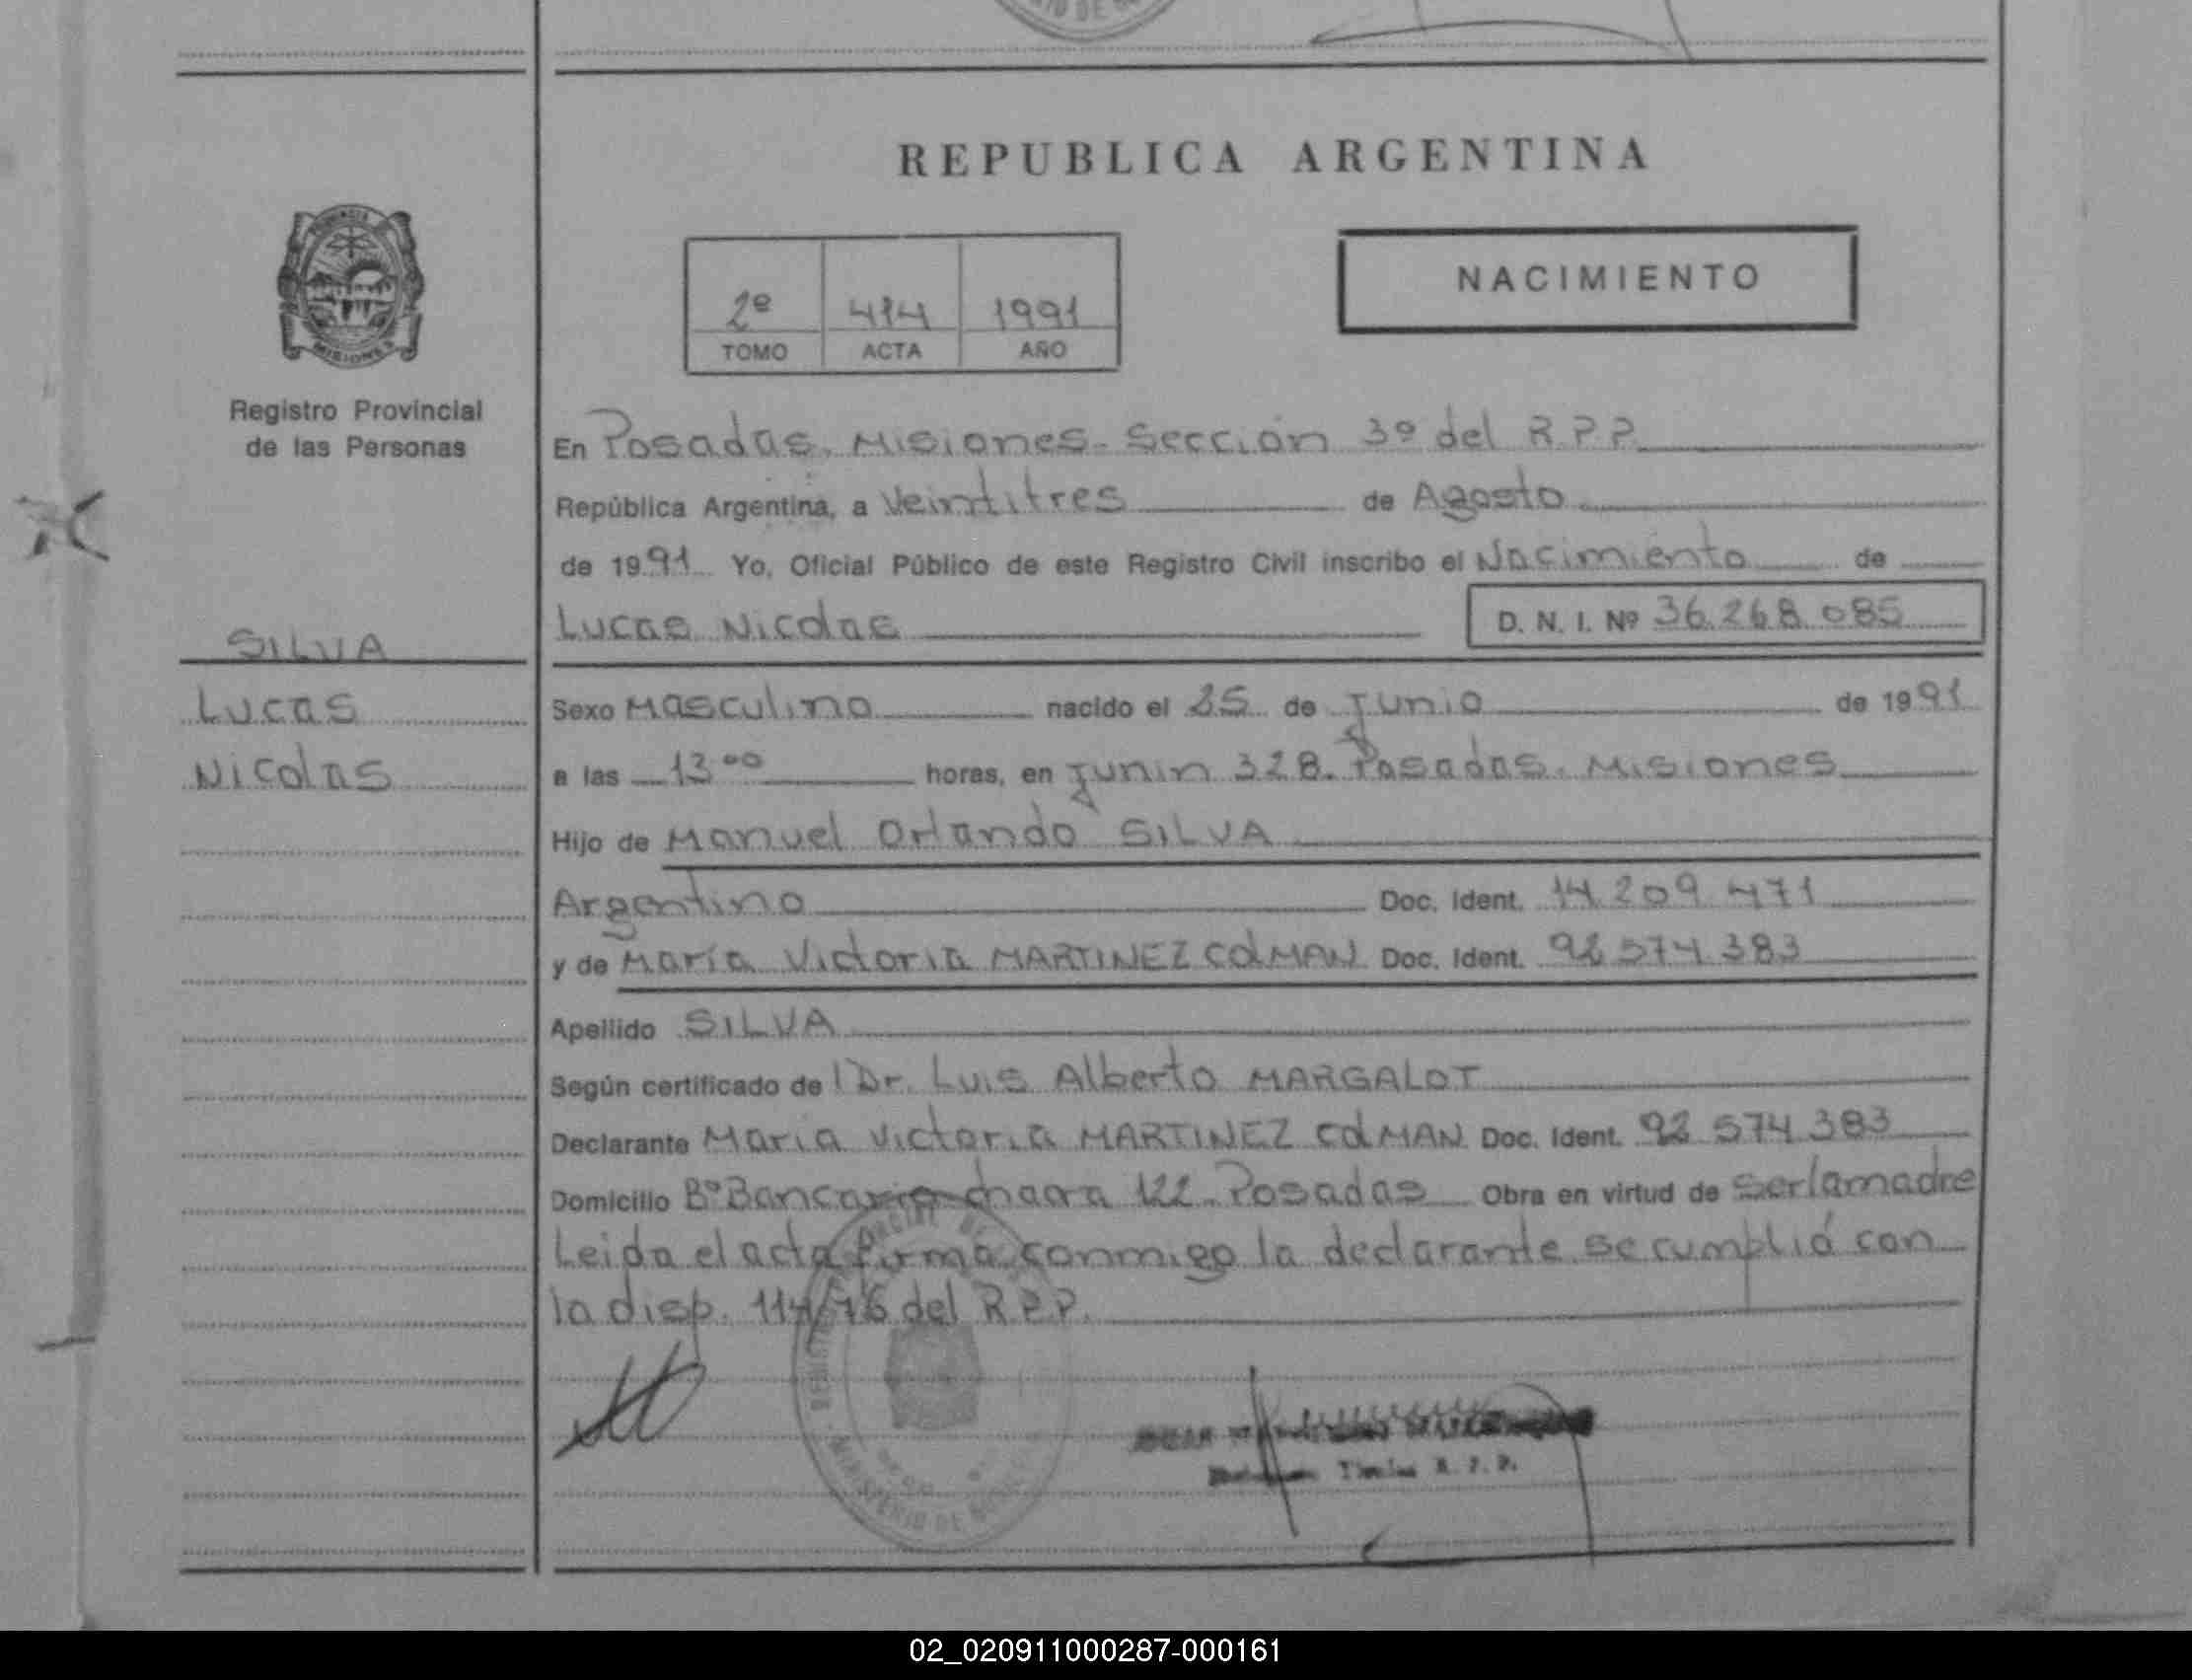 REPUBLICA ARGENTINA
MISIONES
Registro Provincial
de las Personas
SILVA
Lucas
Nicolas
2º 414 1991
TOMO ACTA AÑO
NACIMIENTO
En Posadas. Misiones. Sección 3º del R.P.P.
República Argentina, a Veintitres de Agosto
de 1991 Yo, Oficial Público de este Registro Civil inscribo el Nacimiento de
Lucas Nicolas D. N. I. Nº 36.268.085
Sexo Masculino nacido el 25 de Junio de 1991
a las 13 ºº horas, en Junin 328. Posadas. Misiones
Hijo de Manuel Orlando SILVA
Argentino Doc. Ident. 14.209.471
y de María Victoria MARTINEZ COLMAN Doc. Ident. 92.574.383
Apellido SILVA
Según certificado de l Dr. Luis Alberto MARGALOT
Declarante Maria Victoria MARTINEZ COLMAN Doc. Ident. 92.574.383
Domicilio Bº Bancario chacra 122. Posadas Obra en virtud de ser la madre
Leida el acta firma conmigo la declarante se cumplió con
la disp. 114/76 del R.P.P.
R. P. P.
02_020911000287-000161